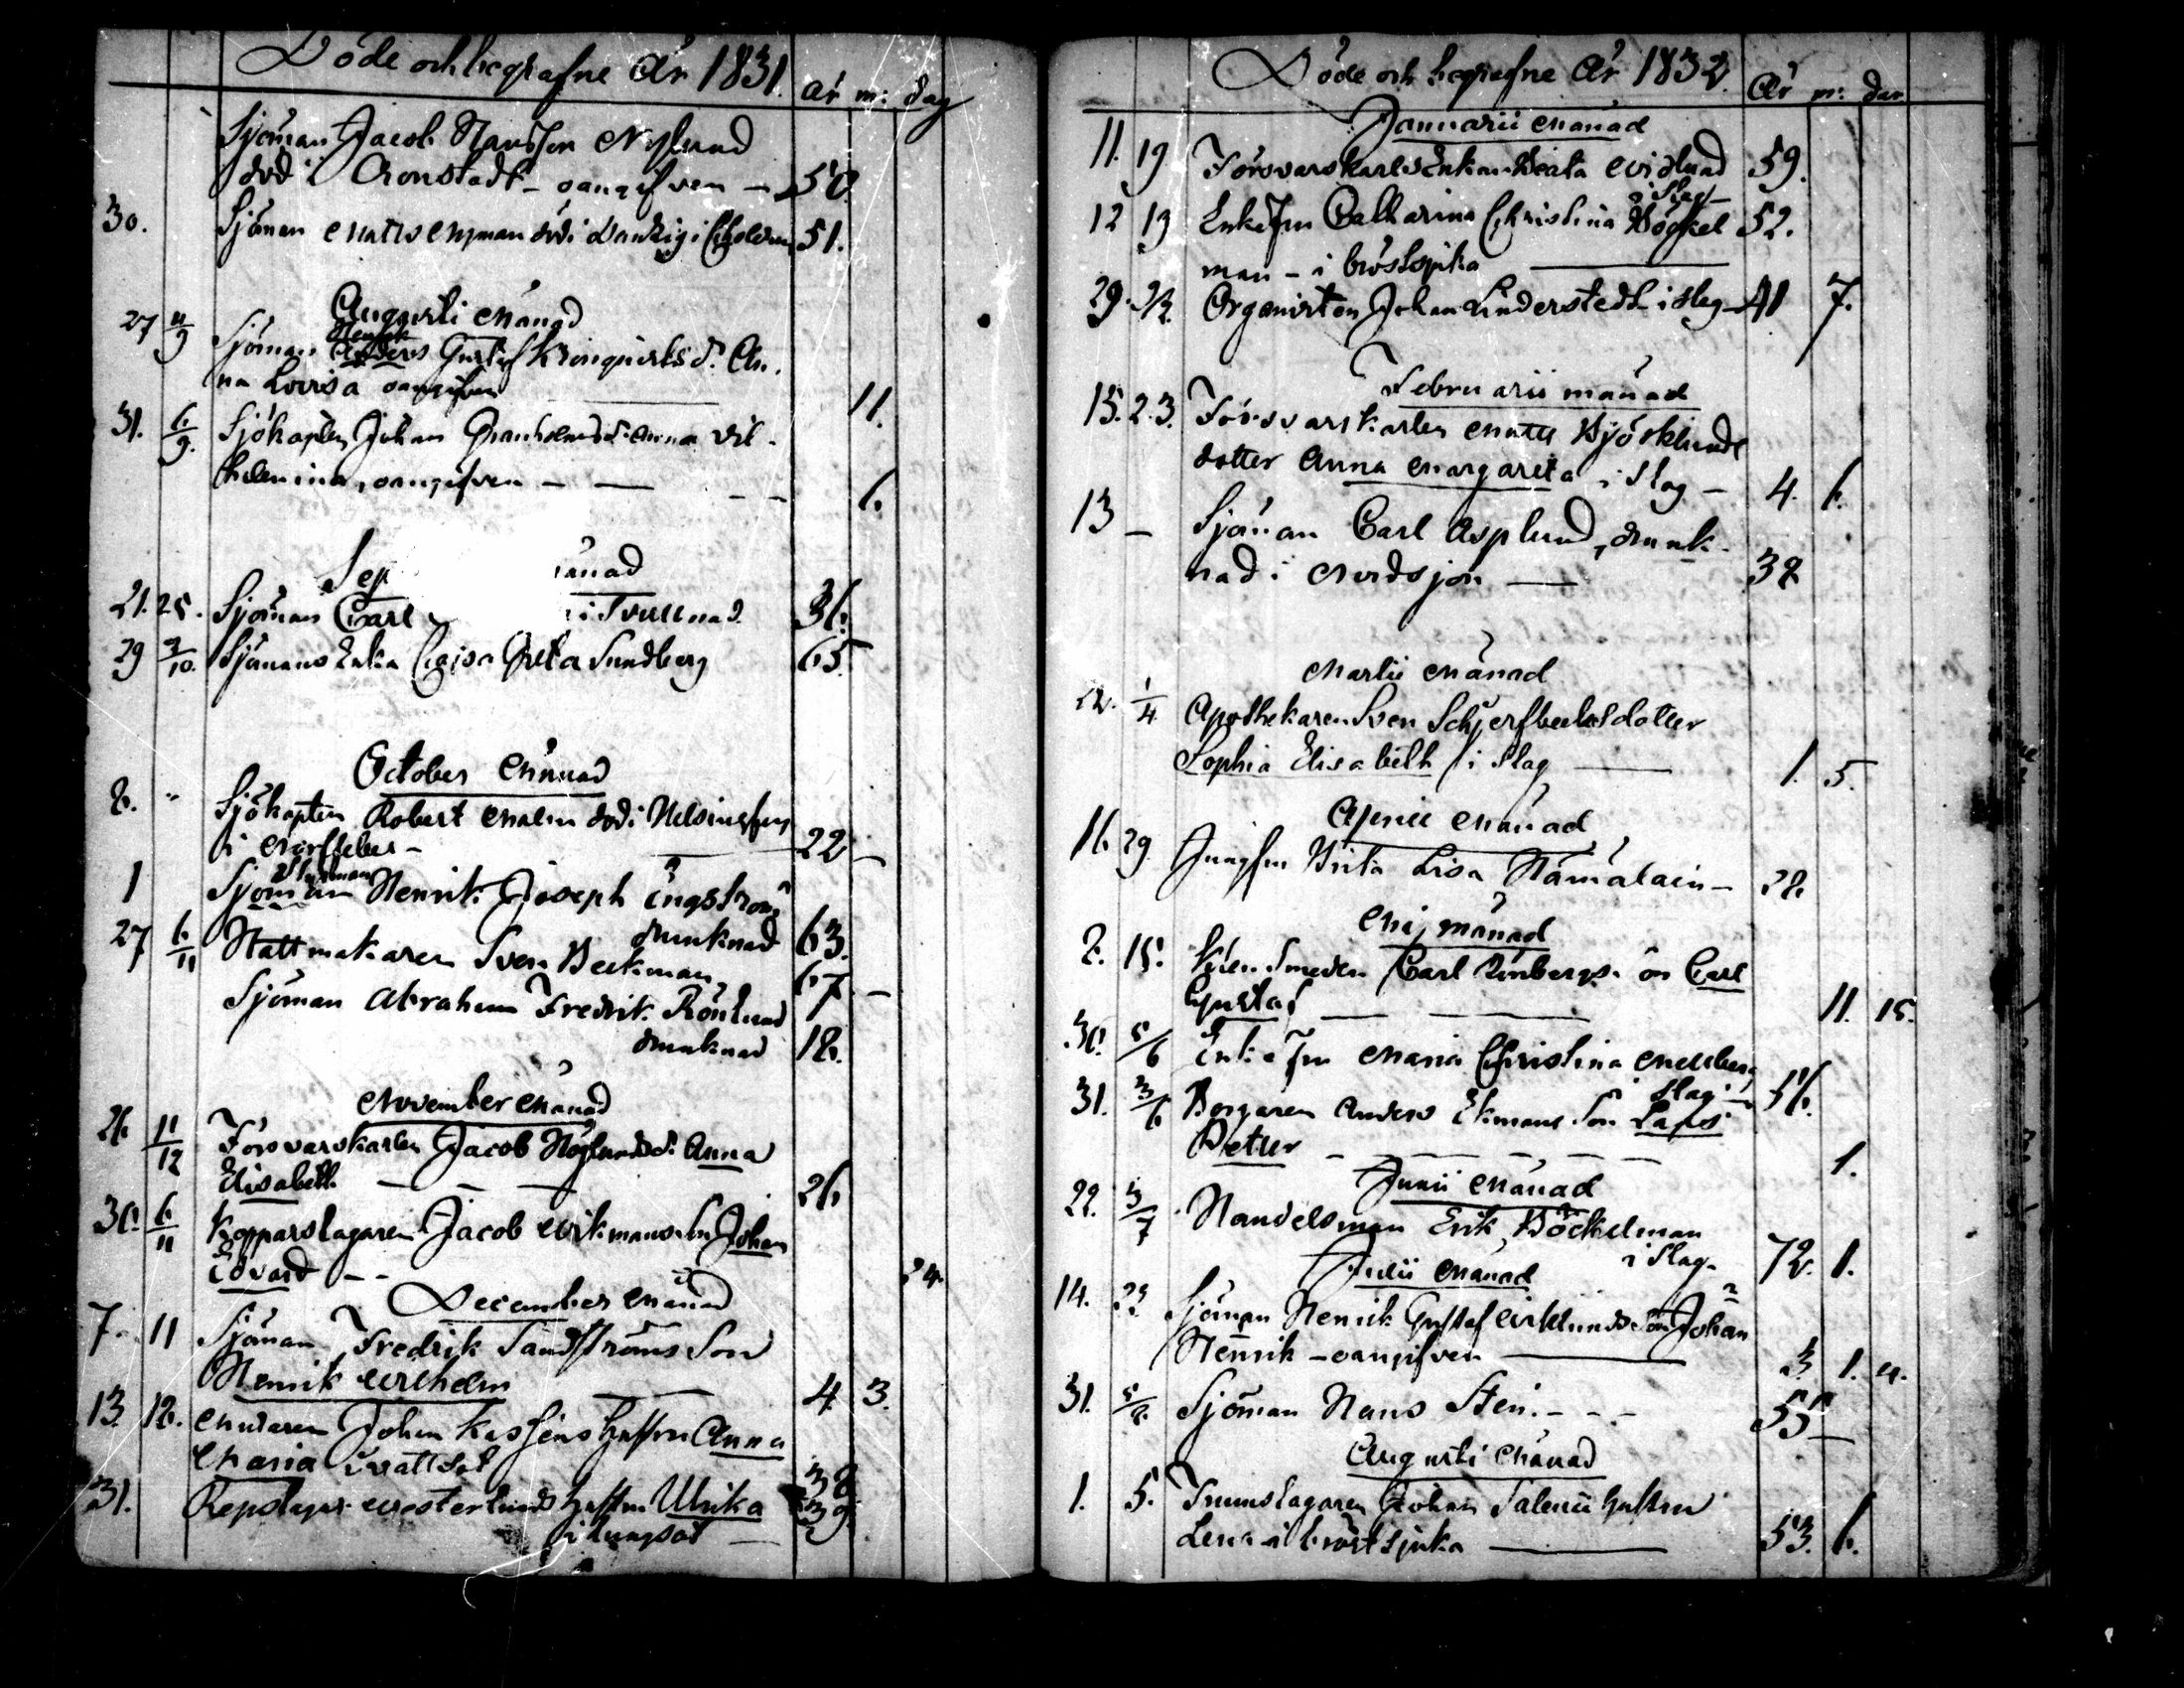 Döde och begrafne År 1831. År m: dag
Sjöman Jacob Hansson Nylund
död i Cronstadt - oangifven - 50.
30. Sjöman Matts Nyman död i Dantzig i Choleran 51.
Augusti Månad
27 11/9 Sjöman Henrik Gustaf Kronqvists d. An-
na Lovisa oangifven 11.
31. 6/9. Sjökapten Johan Granholms d. Anna Vil-
helmina, oangifven - - - - 6.
Sep ånad
21. 25. Sjöman Carl i Svullnad. 36.
29 9/10. Sjömans Enka Cajsa Greta Sundberg 65.
October Månad
8. " Sjökapten Robert Malm död i Helsingfors
i Nerffeber - 22 -
Styrman
1 Sjöman Henrik Joseph Engström
drunknad 63.
27 6/11 Hattmakaren Sven Beckman 67. -
Sjöman Abraham Fredrik Rönlund
drunknad 18.
November Månad
26 11/12 Försvarskarlen Jacob Höglunds d. Anna
Elisabeth - - - 26
30. 6/11 Kopparslagaren Jacob Wikmans son Johan
Edvard - - 24.
December Månad
7. 11 Sjöman Fredrik Sandströms Son
Henrik Wilhelm 4. 3.
13. 18. Muraren Johan Hustru Anna
Maria i vattsot 38
31. Repslagar Westerlunds hustru Ulrika 39.
i lungsot -
Döde och begrafne År 1832. År m: dar
Januarii Månad
11. 19 Försvarskarls Enkan Beata Widlund 59.
i Slag -
12 19 Enkefru Catharina Christina Böckel 52.
man - i bröstsjuka
29. 5/2. Organisten Johan Linderstedt i Slag - 41 7.
Februarii månad
15. 23. Försvarskarlen Matts Björklunds
dotter Anna Margareta i Slag - 4. 6.
13 - Sjöman Carl Asplund, drunk-
nad i Nordsjön - 38
Martii Månad
22. 1/4 Apothekaren Sven Schjerfbecks dotter
Sophia Elisabeth i Slag 1. 5.
Aprill Månad
16. 29 Jungfru Brita Lisa Hämäläin - 28.
Maj månad
8. 15. Smeden Carl son Carl
Gustaf 11. 15.
30. 5/6 Enkefru Maria Christina Mellberg
i Slag - 56.
31. 3/6. Borgaren Anders Ekmans Son Lars
Petter - - - - - 1.
Junii Månad
22. 3/7 Handelsman Erik Böckelman
i Slag - 72. 1.
Julii Månad
14. 22 Sjöman Henrik Gustaf Wiklunds Son Johan
Henrik - oangifven 3. 1. 4.
31. 5/8. Sjöman Hans Sten. - - - 55 -
Augusti Månad
1. 5. Trumslagaren Johan Salenii hustru
Lena i bröstsjuka 53. 6.